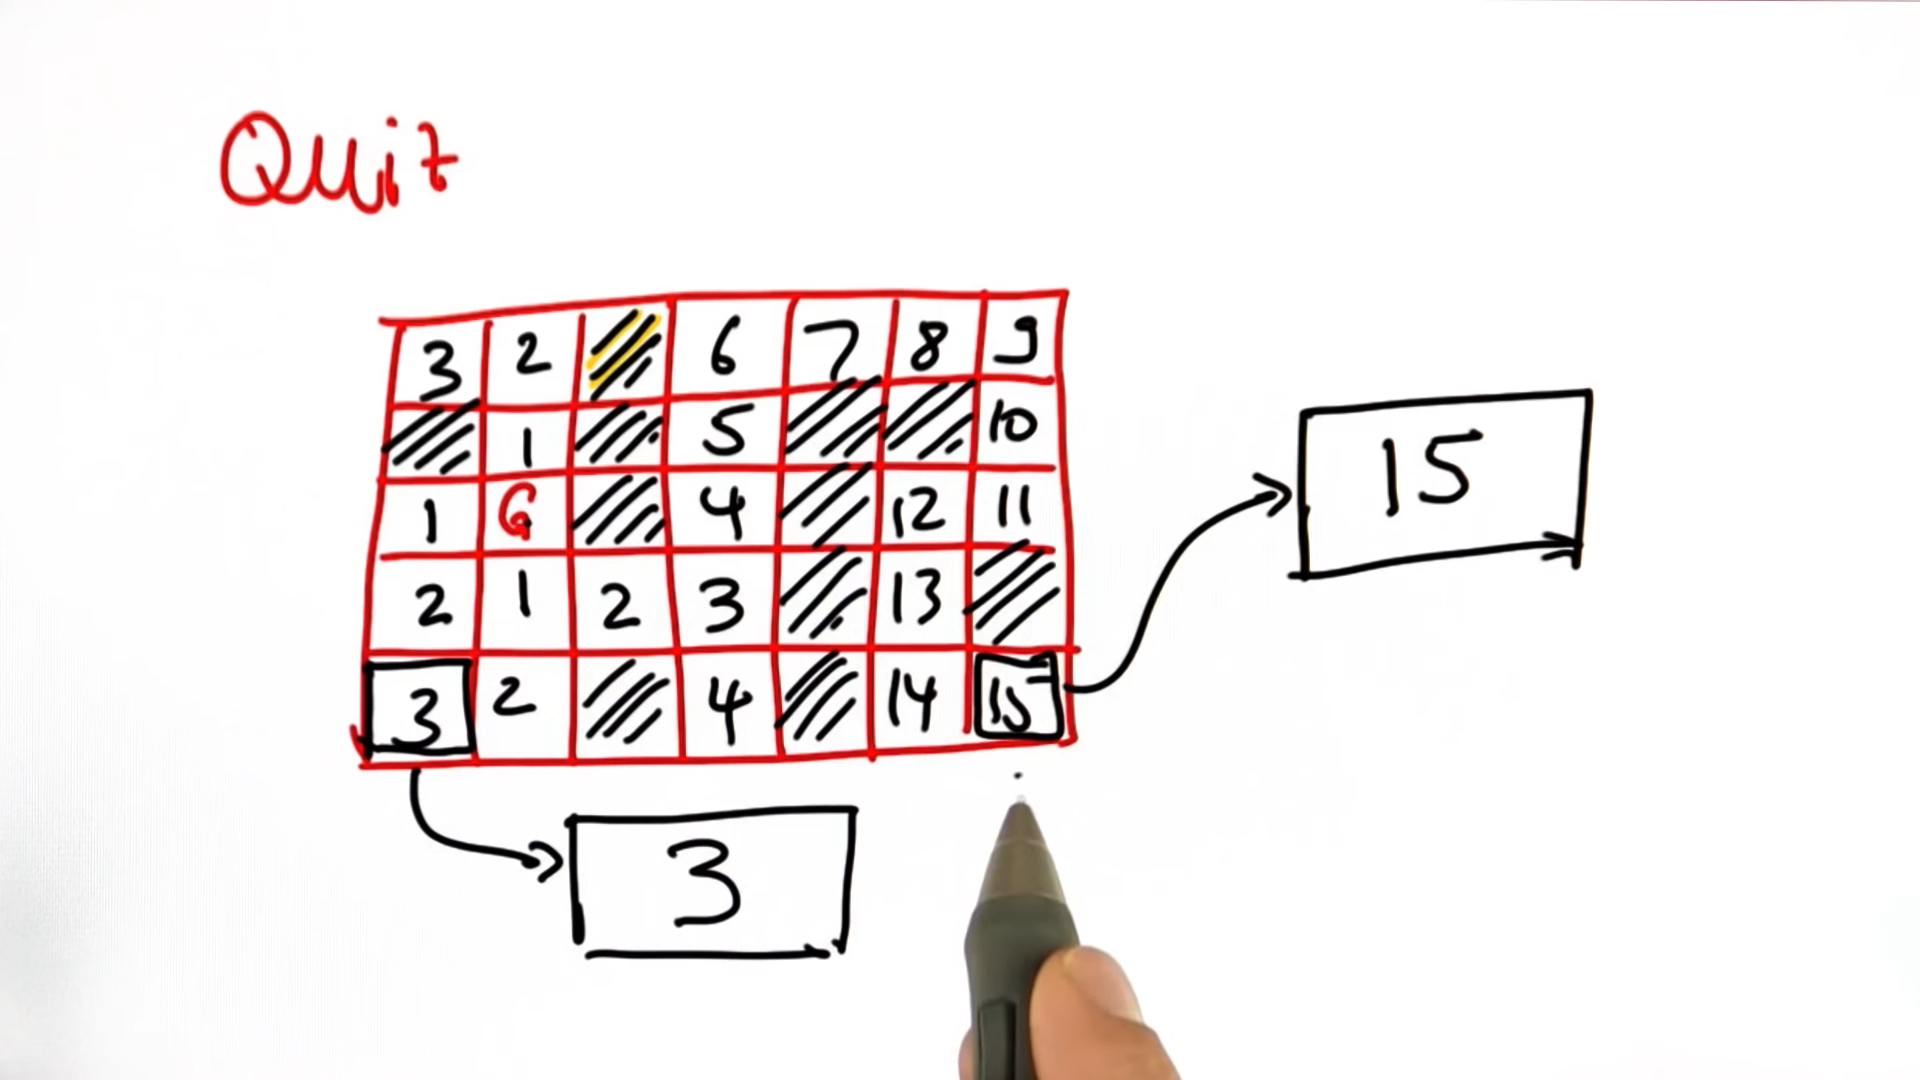 Quiz
3 2 6 7 8 9
1 5 10
1 G 4 12 11
2 1 2 3 13
3 2 4 14 15
15
3